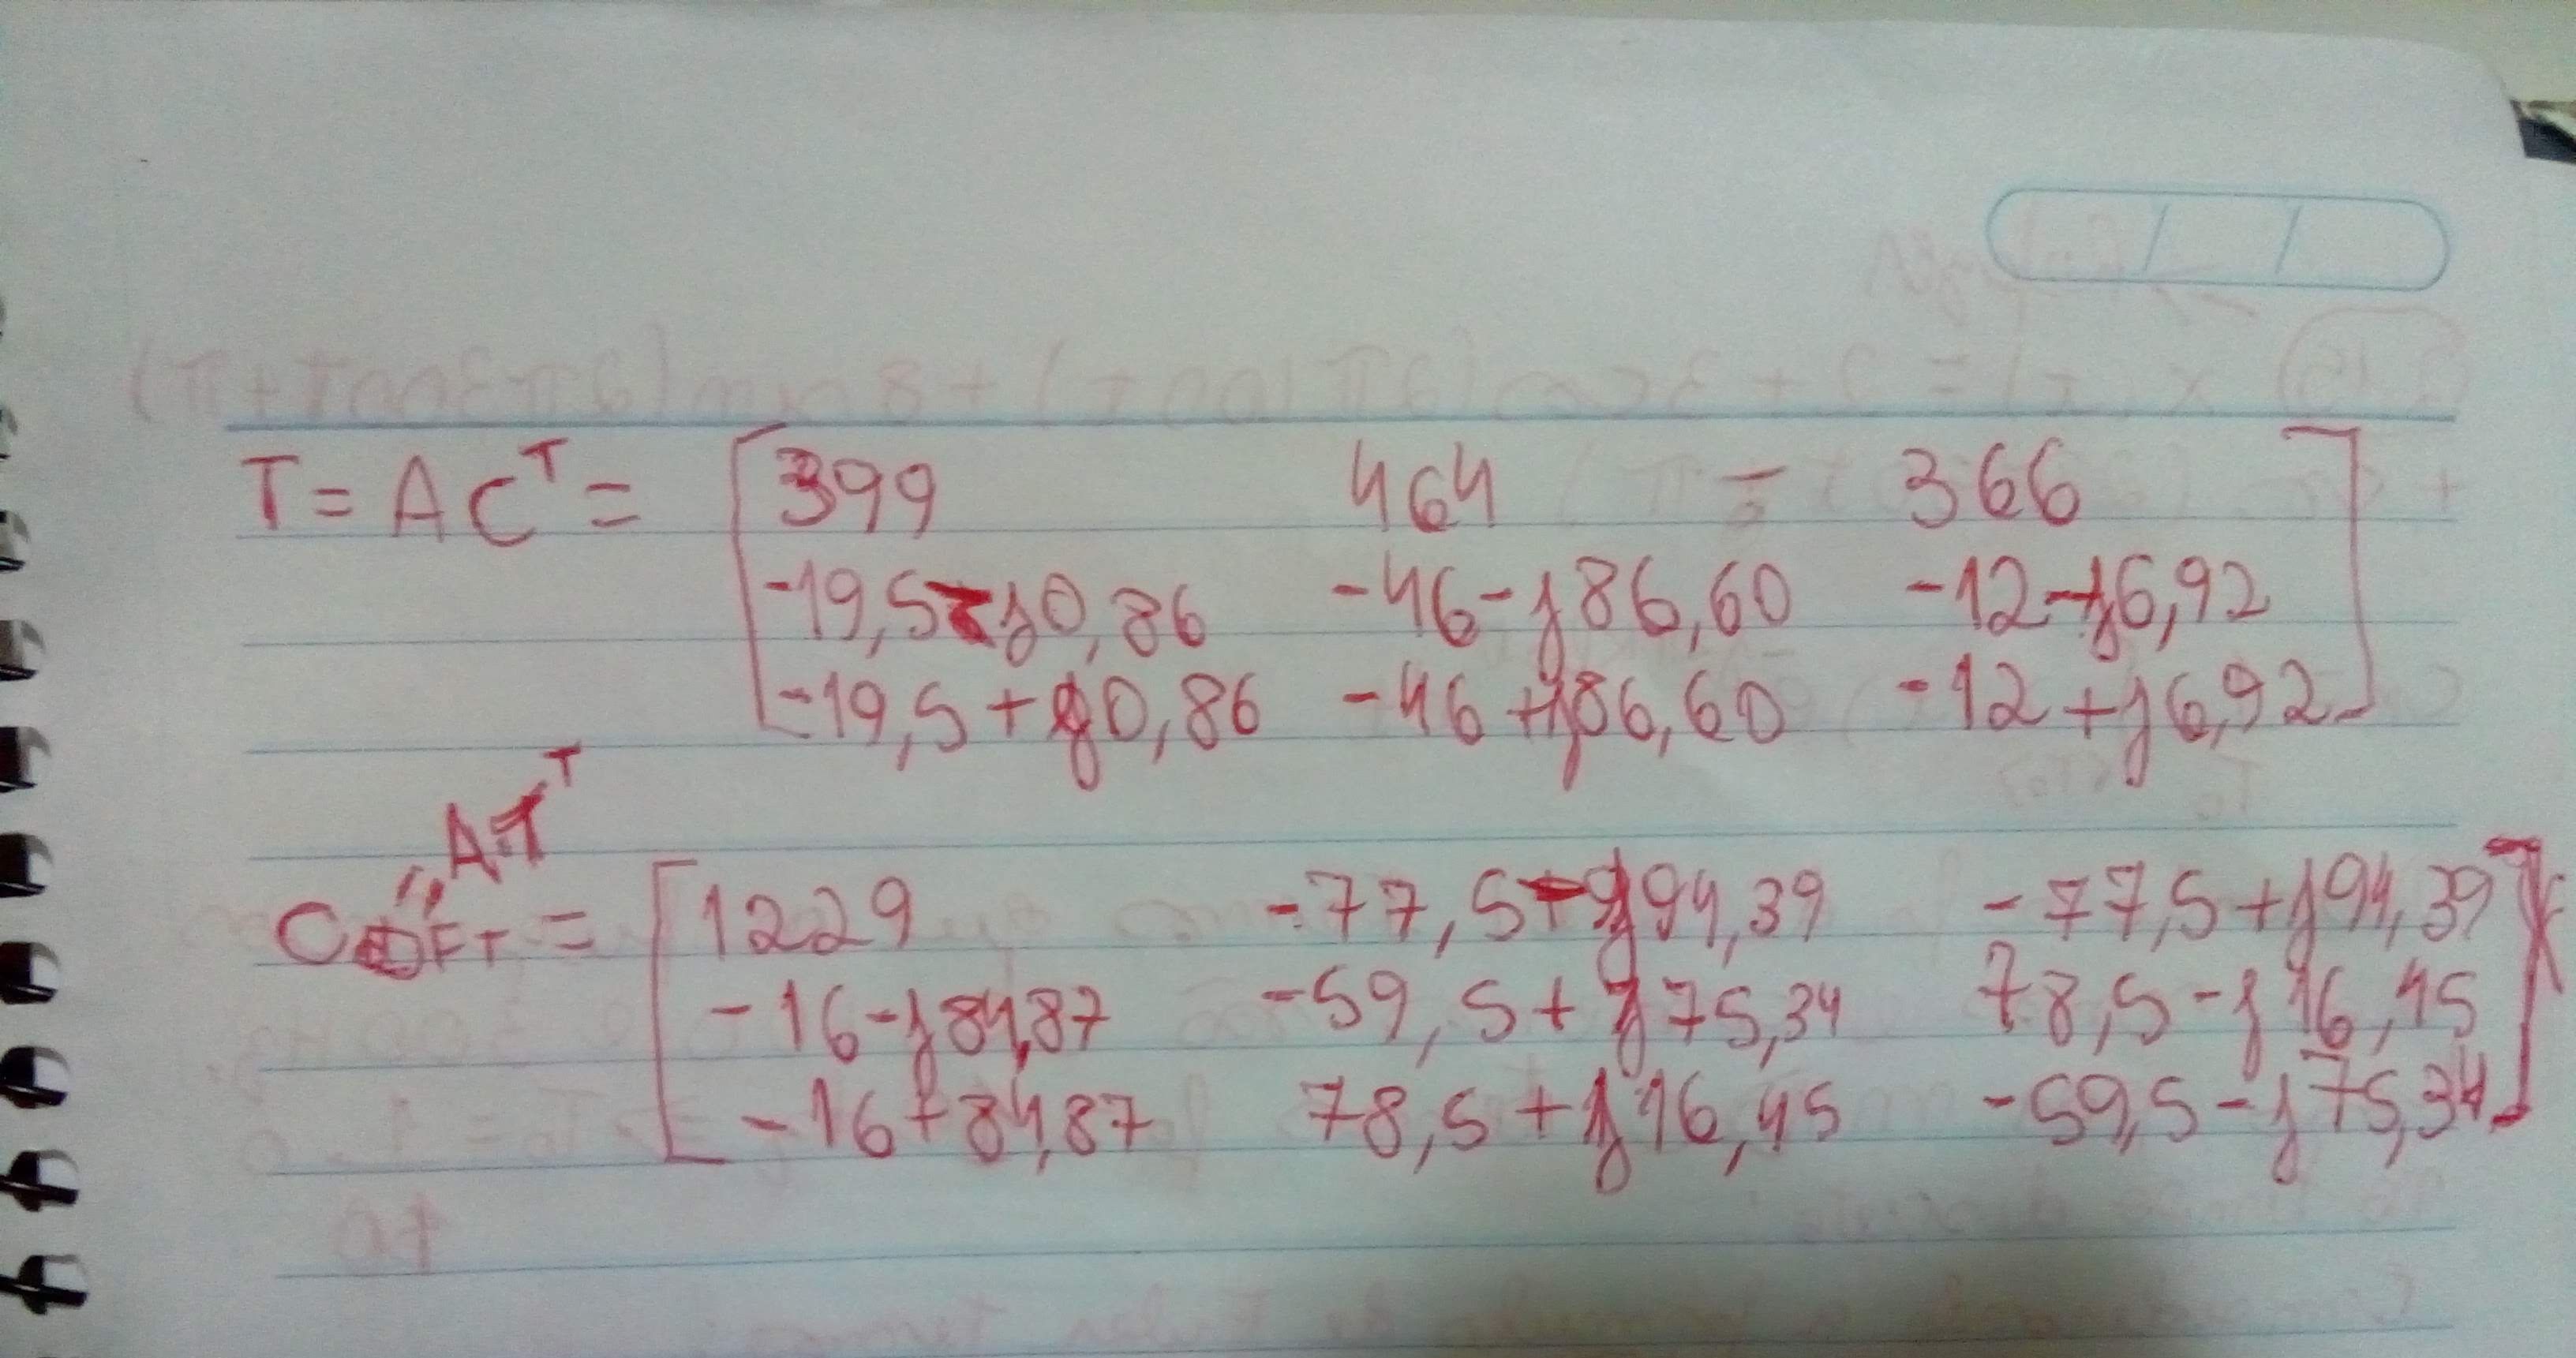 T = AC^T = [399 464 - 366]
[-19,5-j0,86 -46-j86,60 -12-j6,92]
[-19,5+j0,86 -46+j86,60 -12+j6,92]
AT^T
C DFT = [1229 -77,5-j94,39 -77,5+j94,39]
[-16-j84,87 -59,5+j75,34 78,5-j16,45]
[-16+84,87 78,5+j16,45 -59,5-j75,34]